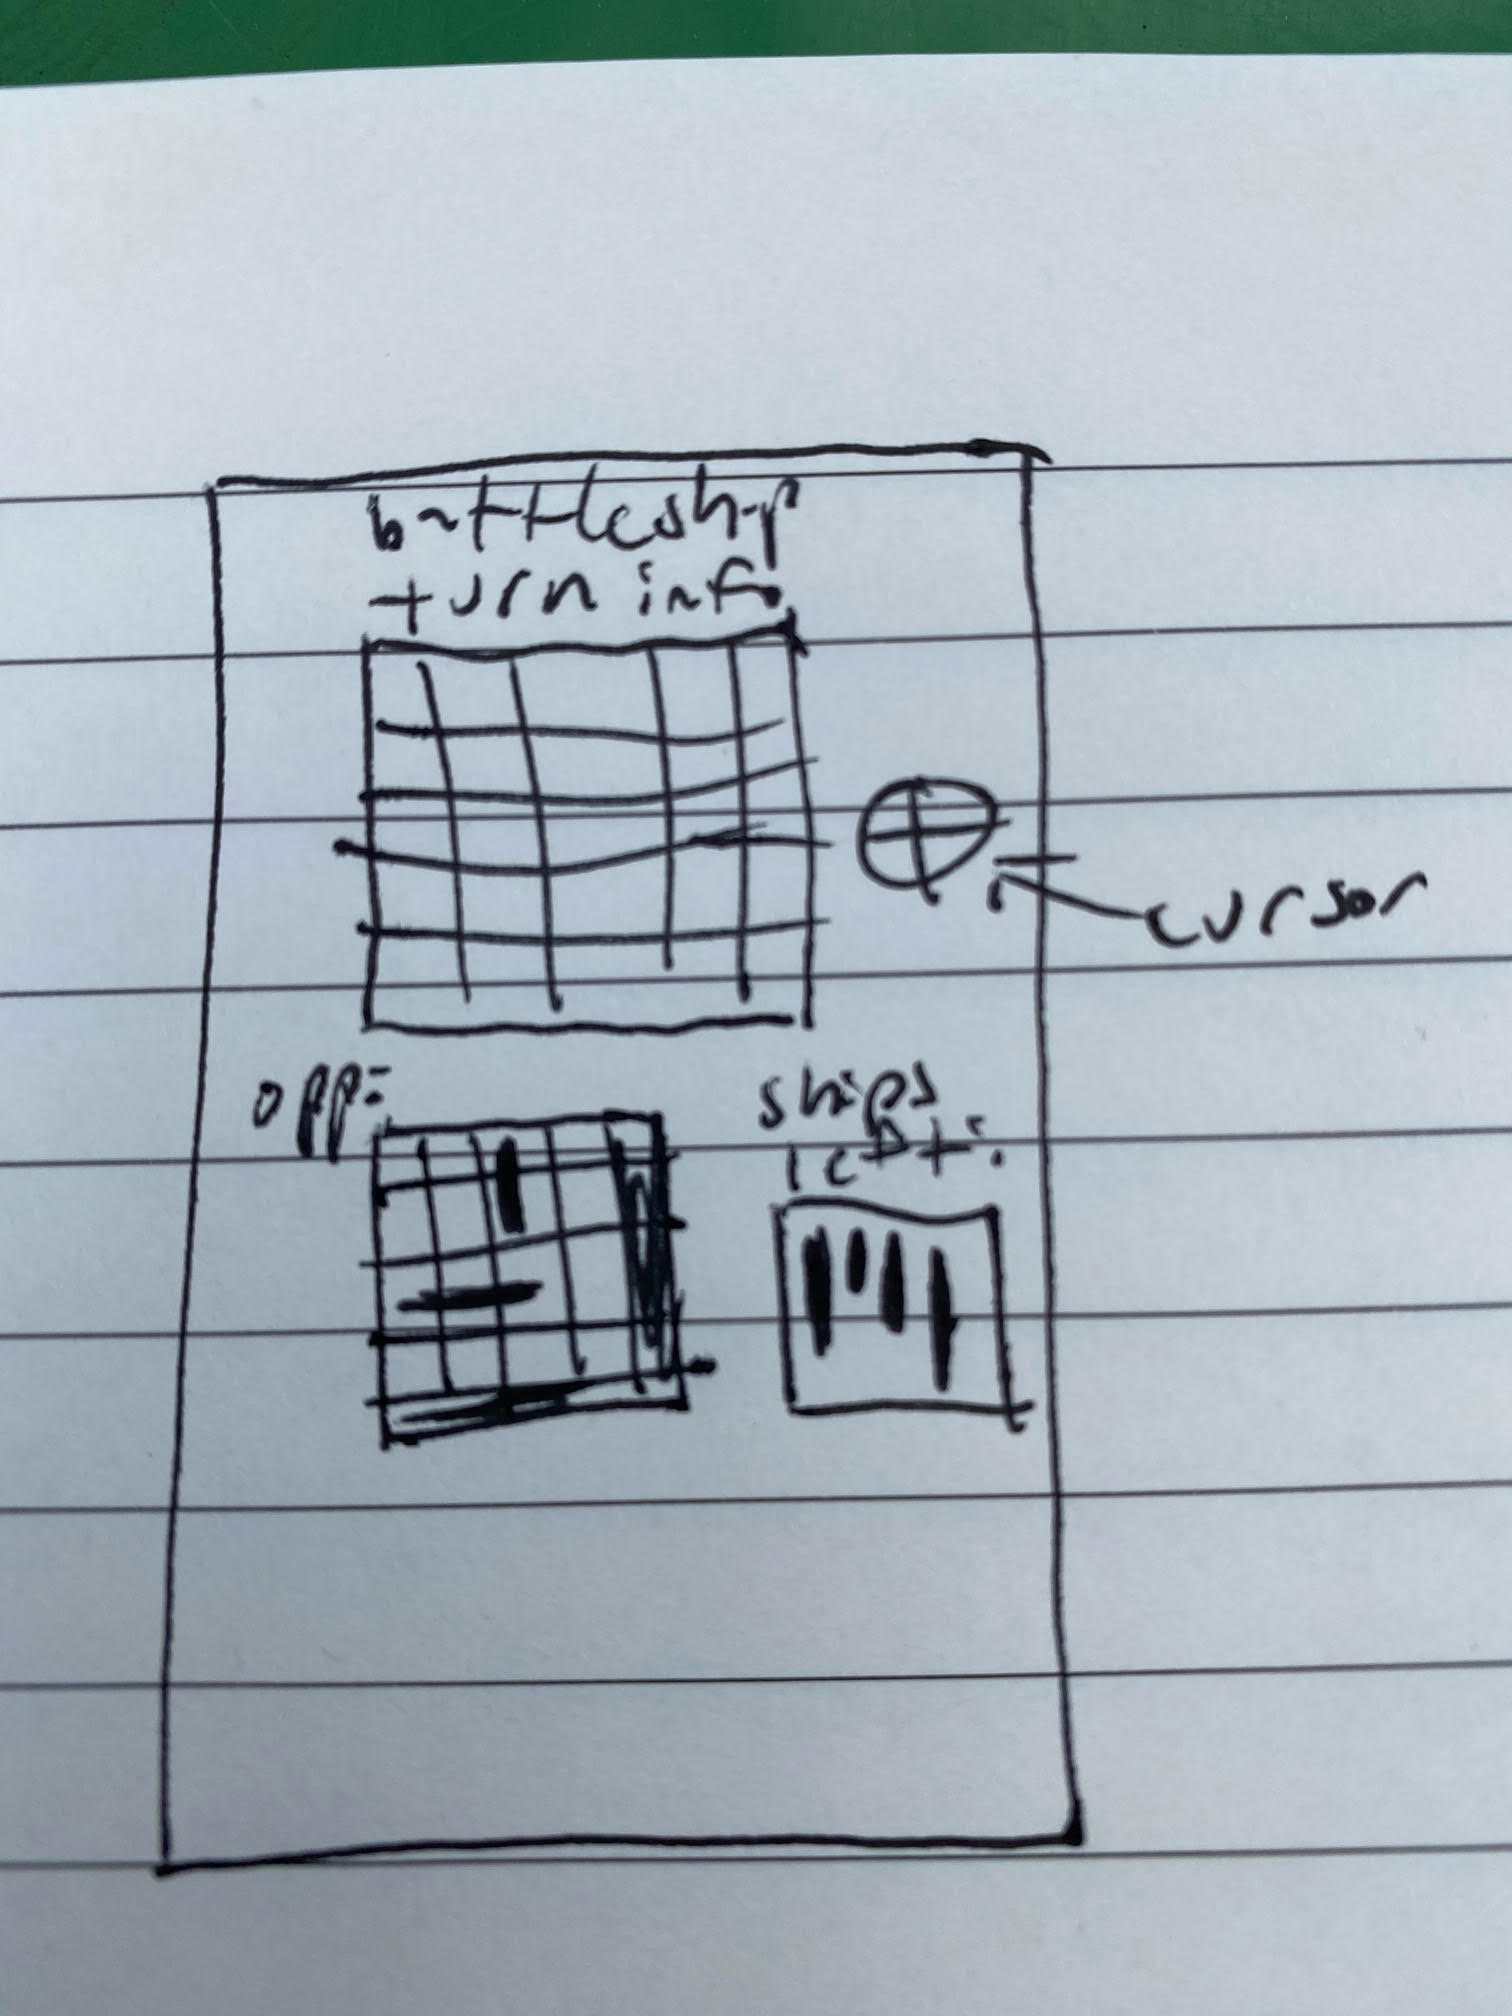 battleship
turn info
cursor
opp:
ships
left: